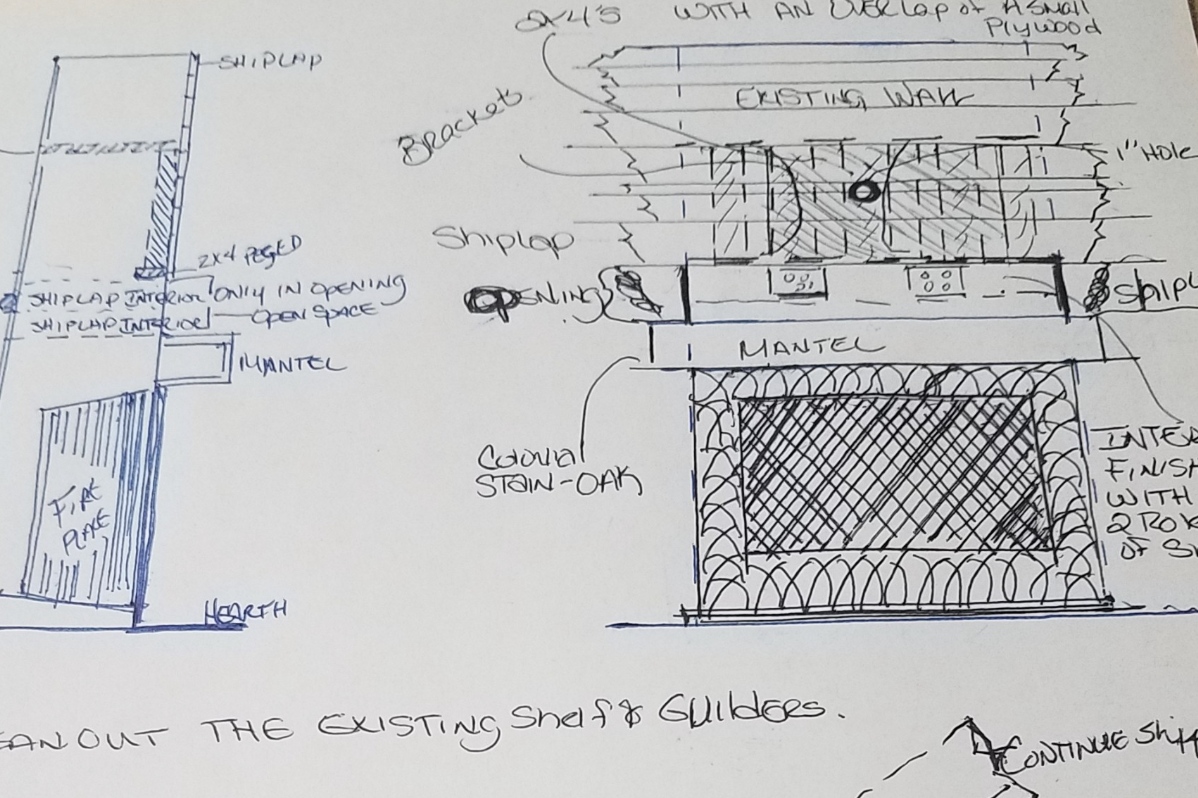 2x4'S WITH AN OVERLAP OF A SMALL
PLYWOOD
SHIPLAP
EXISTING WALL
Brackets
1" HOLE
2x4 PEGED
Shiplap
SHIPLAP INTERIOR ONLY IN OPENING
SHIPLAP INTERIOR OPEN SPACE
OPENING
SHIPL
MANTEL
MANTEL
Colonial
STAIN-OAK
INTE
FINISH
WITH
2 ROW
OF S
FIRE
PLACE
HEARTH
EAN OUT THE EXISTING Shelf &
CONTINUE Ship